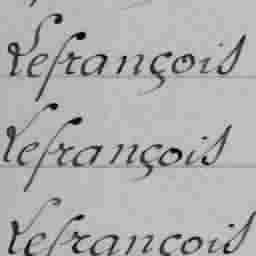 Lefrançois
Lefrançois
Lefrançois